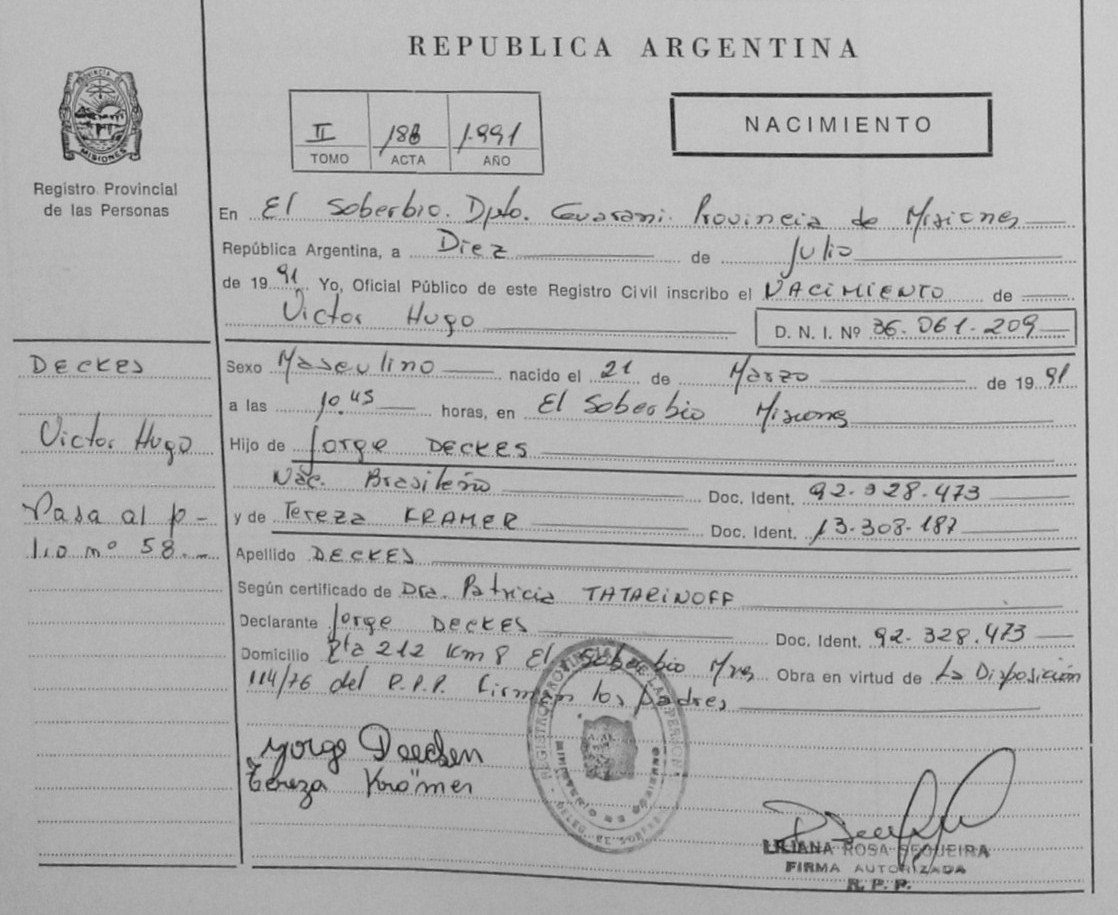 REPUBLICA ARGENTINA
PROVINCIA DE MISIONES
Registro Provincial
de las Personas
II 188 1.991
TOMO ACTA AÑO
NACIMIENTO
En El Soberbio. Dpto. Guarani. Provincia de Misiones
República Argentina, a Diez de Julio
de 1991 Yo, Oficial Público de este Registro Civil inscribo el NACIMIENTO de
Victor Hugo D. N. I. Nº 36.061.209
Sexo Masculino nacido el 21 de Marzo de 1991
a las 10.45 horas, en El Soberbio Misiones
Hijo de Jorge DECKES
Nac. Brasileño Doc. Ident. 92.328.473
y de Tereza KRAMER Doc. Ident. 13.308.187
Apellido DECKES
Según certificado de Dra. Patricia TATARINOFF
Declarante Jorge DECKES Doc. Ident. 92.328.473
Domicilio Rta 212 Km 8 El Soberbio Mnes Obra en virtud de La Disposición
114/76 del R.P.P. Firman los padres
DECKES
Victor Hugo
Pasa al fo-
lio nº 58.
Yorge Deecken
Tereza Krämer
REGISTRO PROVINCIAL DE LAS PERSONAS
MINISTERIO DE GOBIERNO
LILIANA ROSA SEQUEIRA
FIRMA AUTORIZADA
R. P. P.